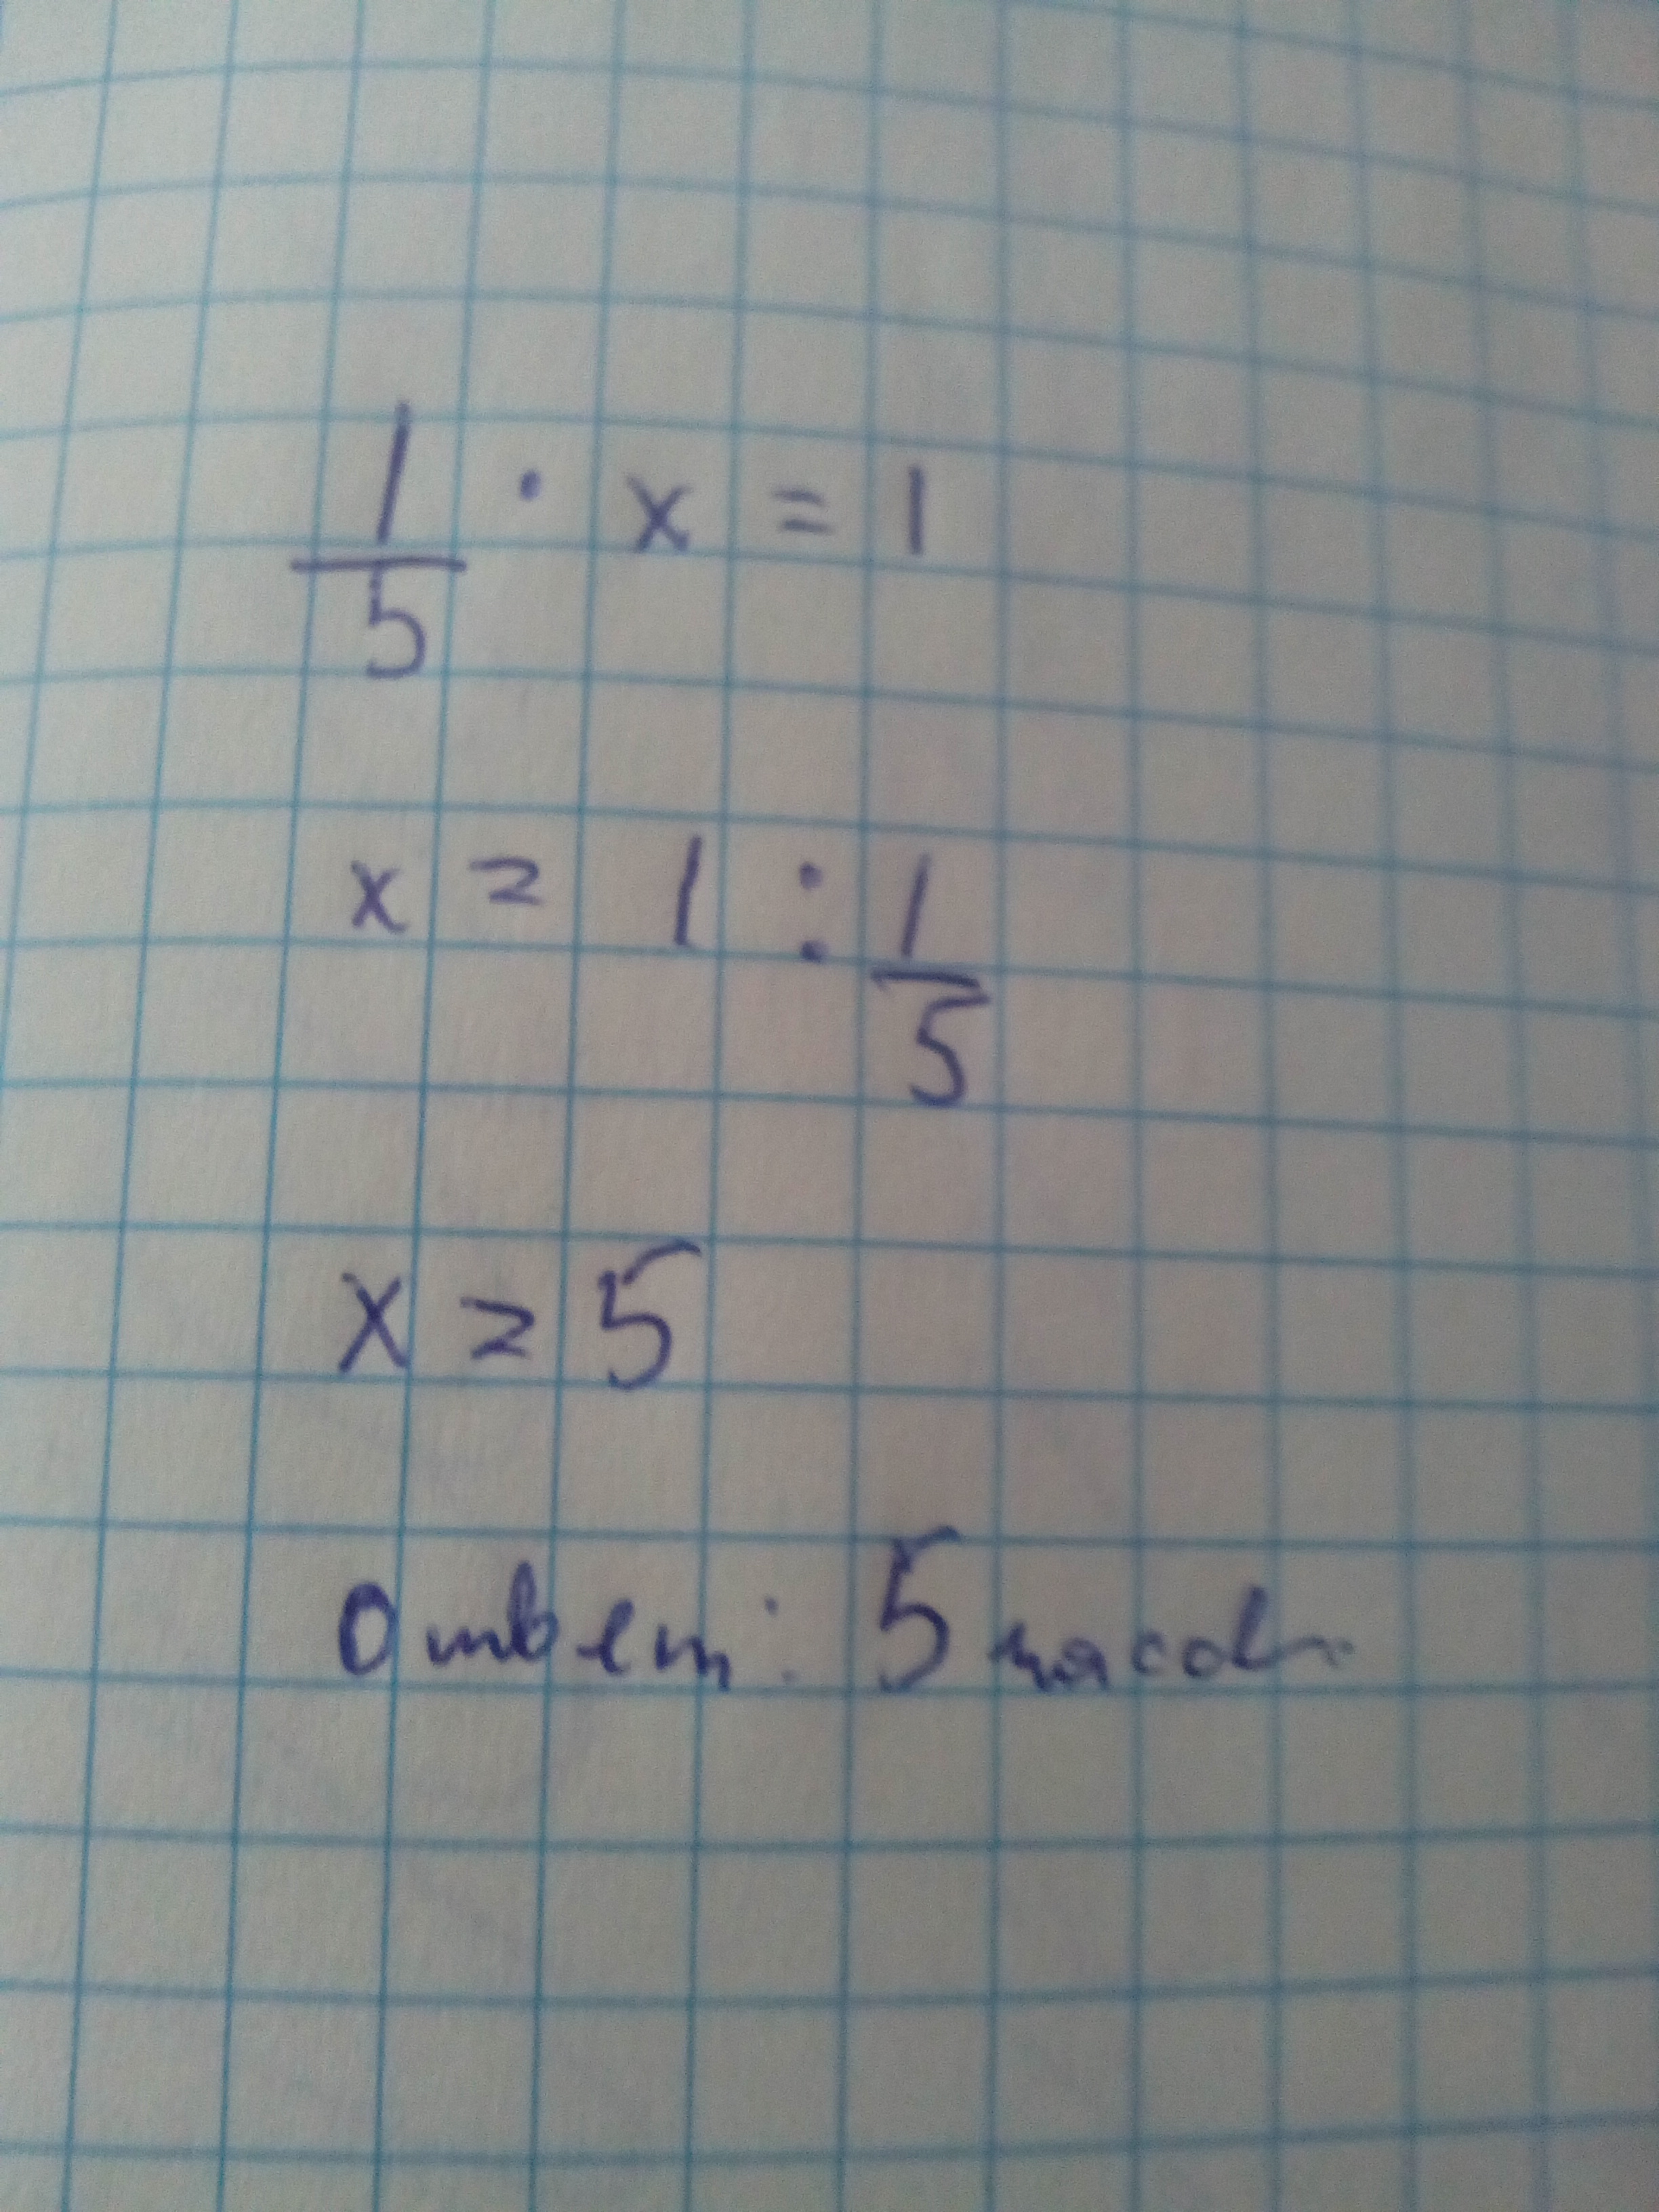 1/5 · x = 1
x = 1 : 1/5
x = 5
Ответ: 5 часов.